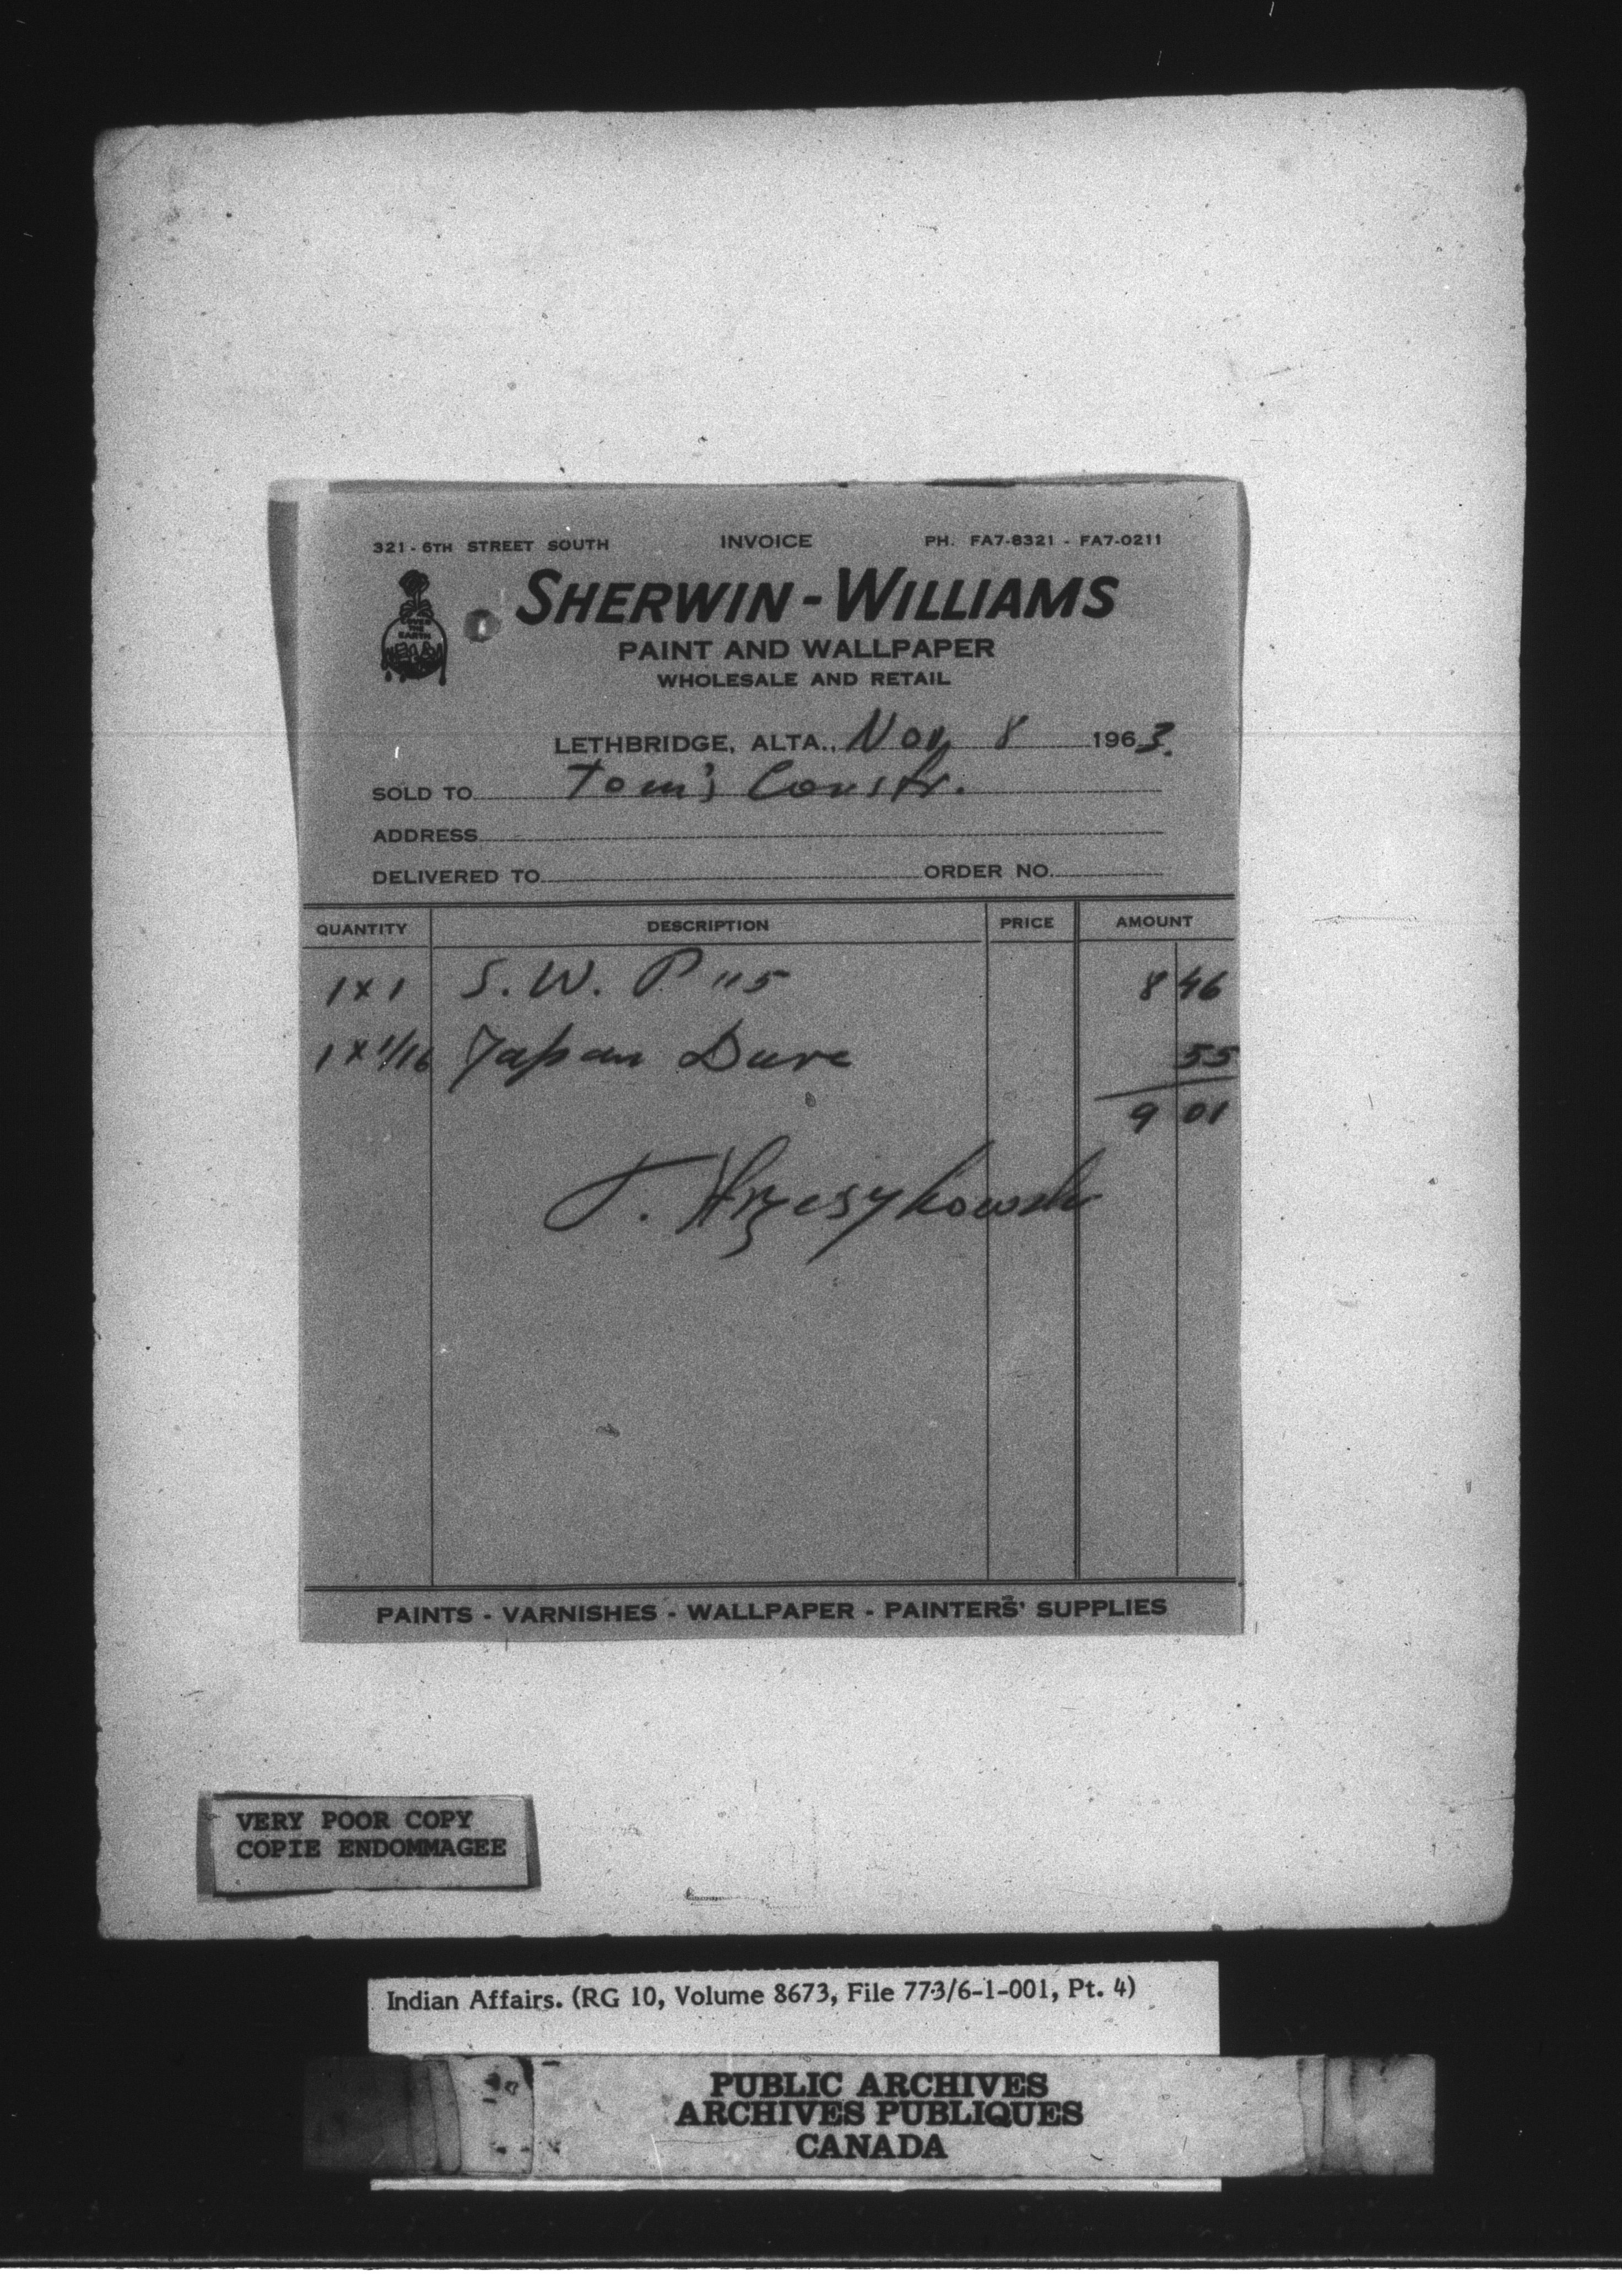 321 - 6TH STREET SOUTH INVOICE PH. FA7-8321 - FA7-0211
COVER THE EARTH
SHERWIN-WILLIAMS
PAINT AND WALLPAPER
WHOLESALE AND RETAIL
LETHBRIDGE, ALTA., Nov 8 1963.
SOLD TO Tom's Constr.
ADDRESS
DELIVERED TO ORDER NO.
QUANTITY DESCRIPTION PRICE AMOUNT
1x1 S. W. P. 115 8 46
1x1/16 Japan 55
9 01
PAINTS - VARNISHES - WALLPAPER - PAINTERS' SUPPLIES
VERY POOR COPY
COPIE ENDOMMAGEE
Indian Affairs. (RG 10, Volume 8673, File 773/6-1-001, Pt. 4)
PUBLIC ARCHIVES
ARCHIVES PUBLIQUES
CANADA